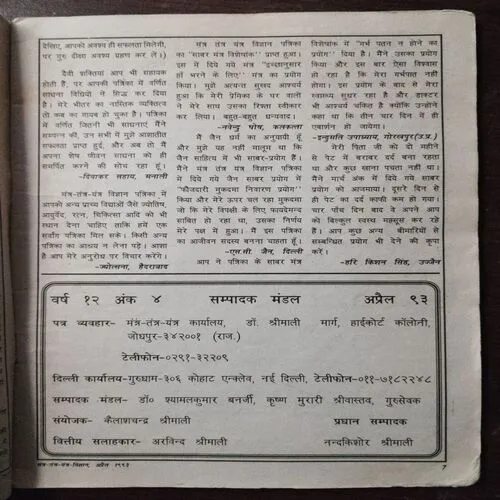 देखिए, आपको अवश्य ही सफलता मिलेगी,
पर गुरु दीक्षा अवश्य ग्रहण कर लें।)
दैवी शक्तियां आप भी सहायक
होती हैं, पर आपकी पत्रिका में वर्णित
साधना विधियों ने सिद्ध कर दिया
है। मेरे भीतर का नास्तिक व्यक्तित्व
तो कब का गायब हो चुका है। पत्रिका में
वर्णित जितनी भी साधनाएं मैंने
सम्पन्न की, उन सभी में मुझे आशातीत
सफलता प्राप्त हुई, और अब तो मैं
अपना शेष जीवन साधना को ही
समर्पित करने की सोच रहा हूं।
-दिवाकर सहाय, मनाली
मंत्र-तंत्र-यंत्र विज्ञान पत्रिका में
आपकी अन्य प्राच्य विद्याओं जैसे ज्योतिष,
आयुर्वेद, रत्न, चिकित्सा आदि को भी
स्थान देना चाहिए ताकि हमें एक
सर्वांग पत्रिका मिल सके। किसी अन्य
पत्रिका का आश्रय न लेना पड़े। आशा
है आप मेरे अनुरोध पर विचार करेंगे।
-ज्योत्सना, हैदराबाद
मंत्र तंत्र यंत्र विज्ञान पत्रिका
का "साबर मंत्र विशेषांक" प्राप्त हुआ।
इस में दिये गये मंत्र "इच्छानुसार
हाँ भरने के लिए" मंत्र का प्रयोग
किया। मुझे अत्यन्त सुखद आश्चर्य
हुआ कि मेरी प्रेमिका के घर वालों
ने मेरे साथ उसका रिश्ता स्वीकार
कर लिया। बहुत-बहुत धन्यवाद।
-नवेन्दु घोष, कलकत्ता
मैं जैन धर्म का अनुयायी हूँ
और मुझे यह नहीं मालूम था कि
जैन साहित्य में भी साबर-प्रयोग हैं।
मैंने पत्रिका के साबर मंत्र विशेषांक
में दिये गये जैन साबर प्रयोग में
"फौजदारी मुकदमा निवारण प्रयोग"
किया और मेरे ऊपर चल रहा मुकदमा
जो कि मेरे विपक्षी के लिए फायदेमन्द
साबित हो रहा था, उसका निर्णय
मेरे पक्ष में हुआ। मैं इस पत्रिका
का आजीवन सदस्य बनना चाहता हूँ।
-एस.सी. जैन, दिल्ली
आप ने पत्रिका के साबर मंत्र
विशेषांक में "गर्भ पतन न होने का
प्रयोग" दिया है। मैंने उसका प्रयोग
किया और इस बार ऐसा विश्वास
हो रहा है कि मेरा गर्भपात नहीं
होगा। इस प्रयोग के बाद से मेरा
स्वास्थ्य सुधर रहा है और डाक्टर
भी आश्चर्य चकित है क्योंकि उन्होंने
कहा था कि तीन चार दिन में ही
एबार्शन हो जायेगा।
-इन्दुमति उपाध्याय, गोरखपुर(उ.प्र.)
मेरी पिता जी को दो महीने
से पेट में बराबर दर्द बना रहता
था और कुछ खाना पचता नहीं था।
मैंने मार्च अंक में दिये गये साबर
प्रयोग को आजमाया। दूसरे दिन से
ही पेट का दर्द काफी कम हो गया।
चार पाँच दिन बाद वे अपने आप
को बिल्कुल स्वस्थ महसूस कर रहे
हैं। आप कुछ अन्य बीमारियों से
सम्बन्धित प्रयोग भी देने की कृपा
करें।
-हरि किशन सिंह, उज्जैन
वर्ष १२ अंक ४ सम्पादक मंडल अप्रैल ९३
पत्र व्यवहार- मंत्र-तंत्र-यंत्र कार्यालय, डॉ. श्रीमाली मार्ग, हाईकोर्ट कॉलोनी,
जोधपुर-३४२००१ (राज.)
टेलीफोन-०२९१-३२२०९
दिल्ली कार्यालय-गुरुधाम-३०६ कोहाट एन्क्लेव, नई दिल्ली, टेलीफोन-०११-७१८२२४८
सम्पादक मंडल- डॉ० श्यामलकुमार बनर्जी, कृष्ण मुरारी श्रीवास्तव, गुरुसेवक
संयोजक- कैलाशचन्द्र श्रीमाली प्रधान सम्पादक
वित्तीय सलाहकार- अरविन्द श्रीमाली नन्दकिशोर श्रीमाली
मंत्र-तंत्र-यंत्र-विज्ञान, अप्रैल १९९३ 7